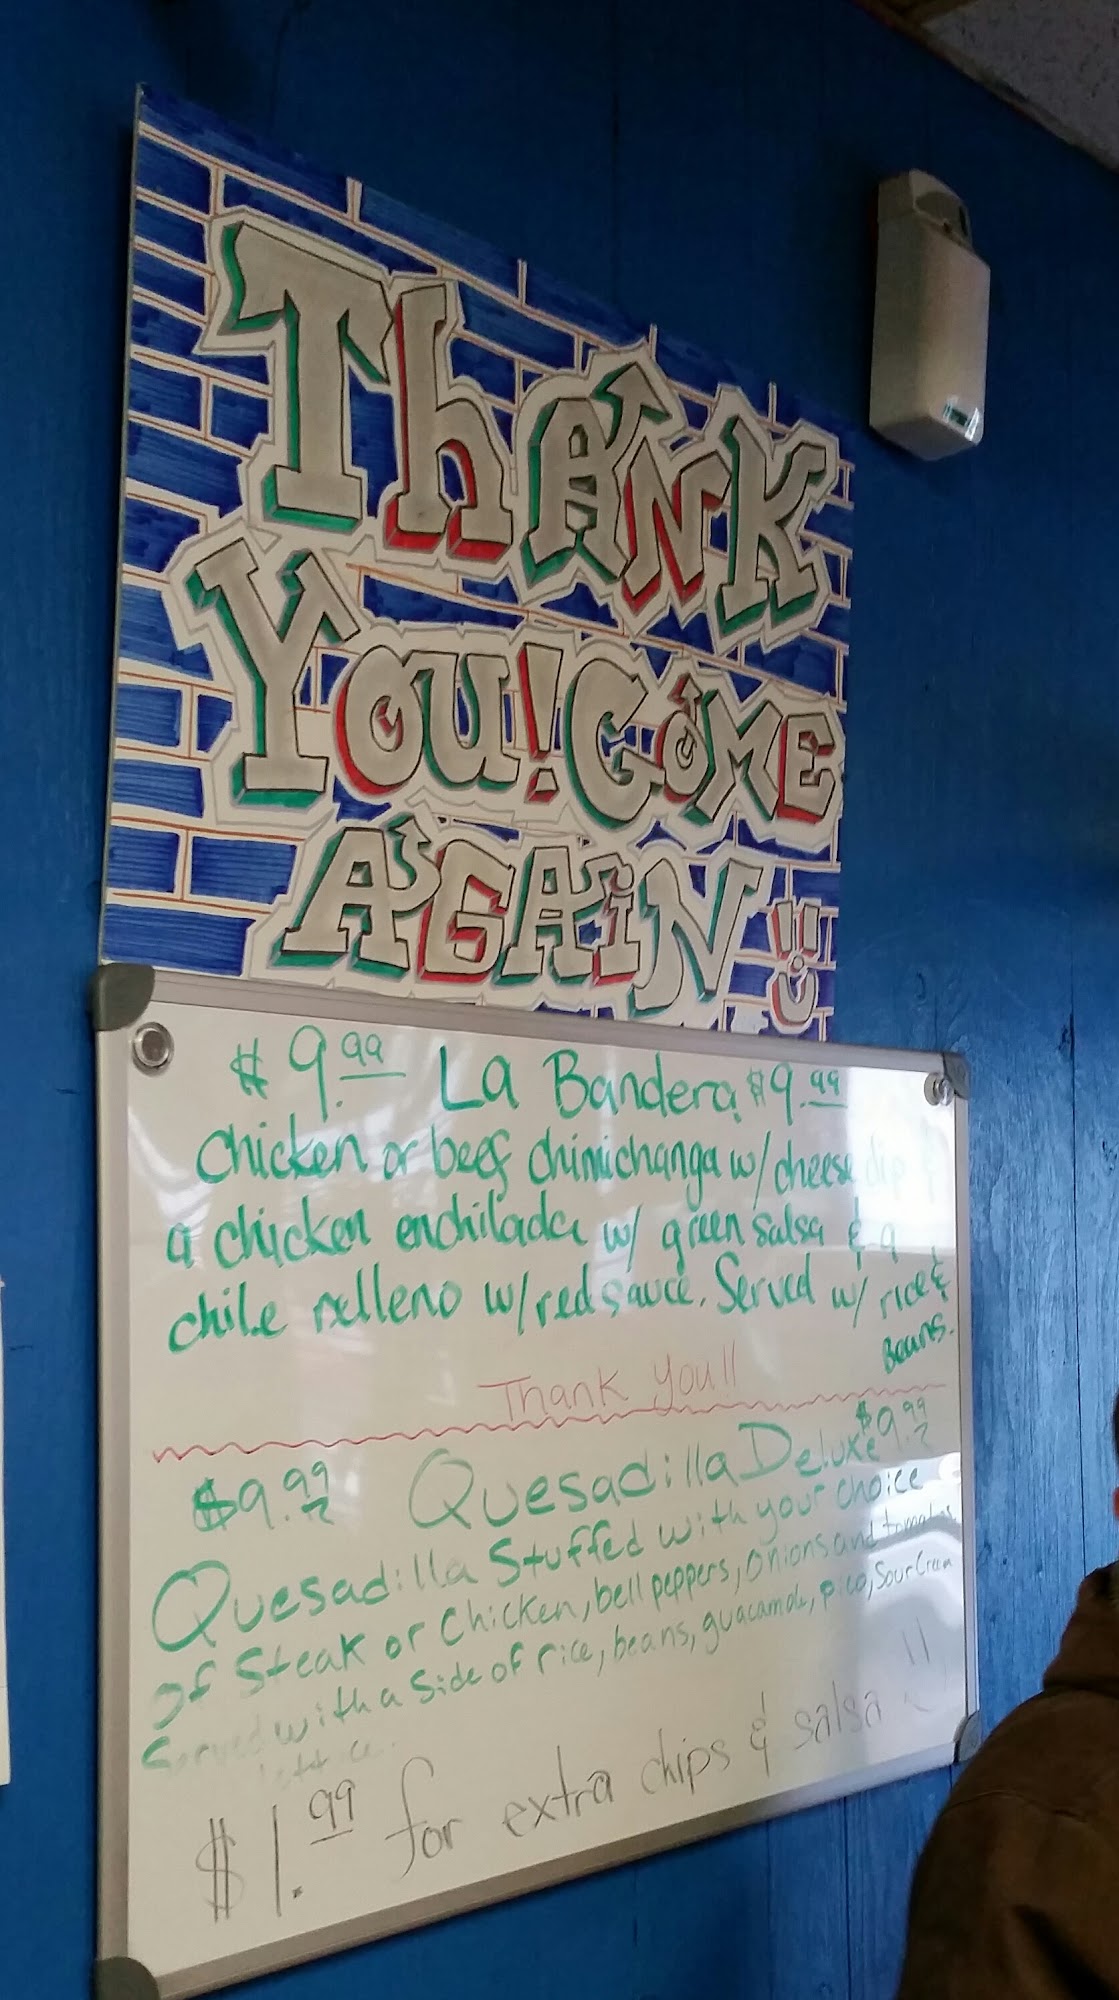 Thank
You! Come
Again
$9.99 La Bandera $9.99
Chicken or beef chimichanga w/ cheese dip &
a chicken enchilada w/ green salsa & a
chile relleno w/ red sauce. Served w/ rice &
Beans.
Thank You!!
$9.99 Quesadilla Deluxe $9.99
Quesadilla Stuffed with your choice
of Steak or Chicken, bell peppers, Onions and tomatoes
Served with a Side of rice, beans, guacamole, pico, Sour Cream
lettuce.
$1.99 for extra chips & salsa